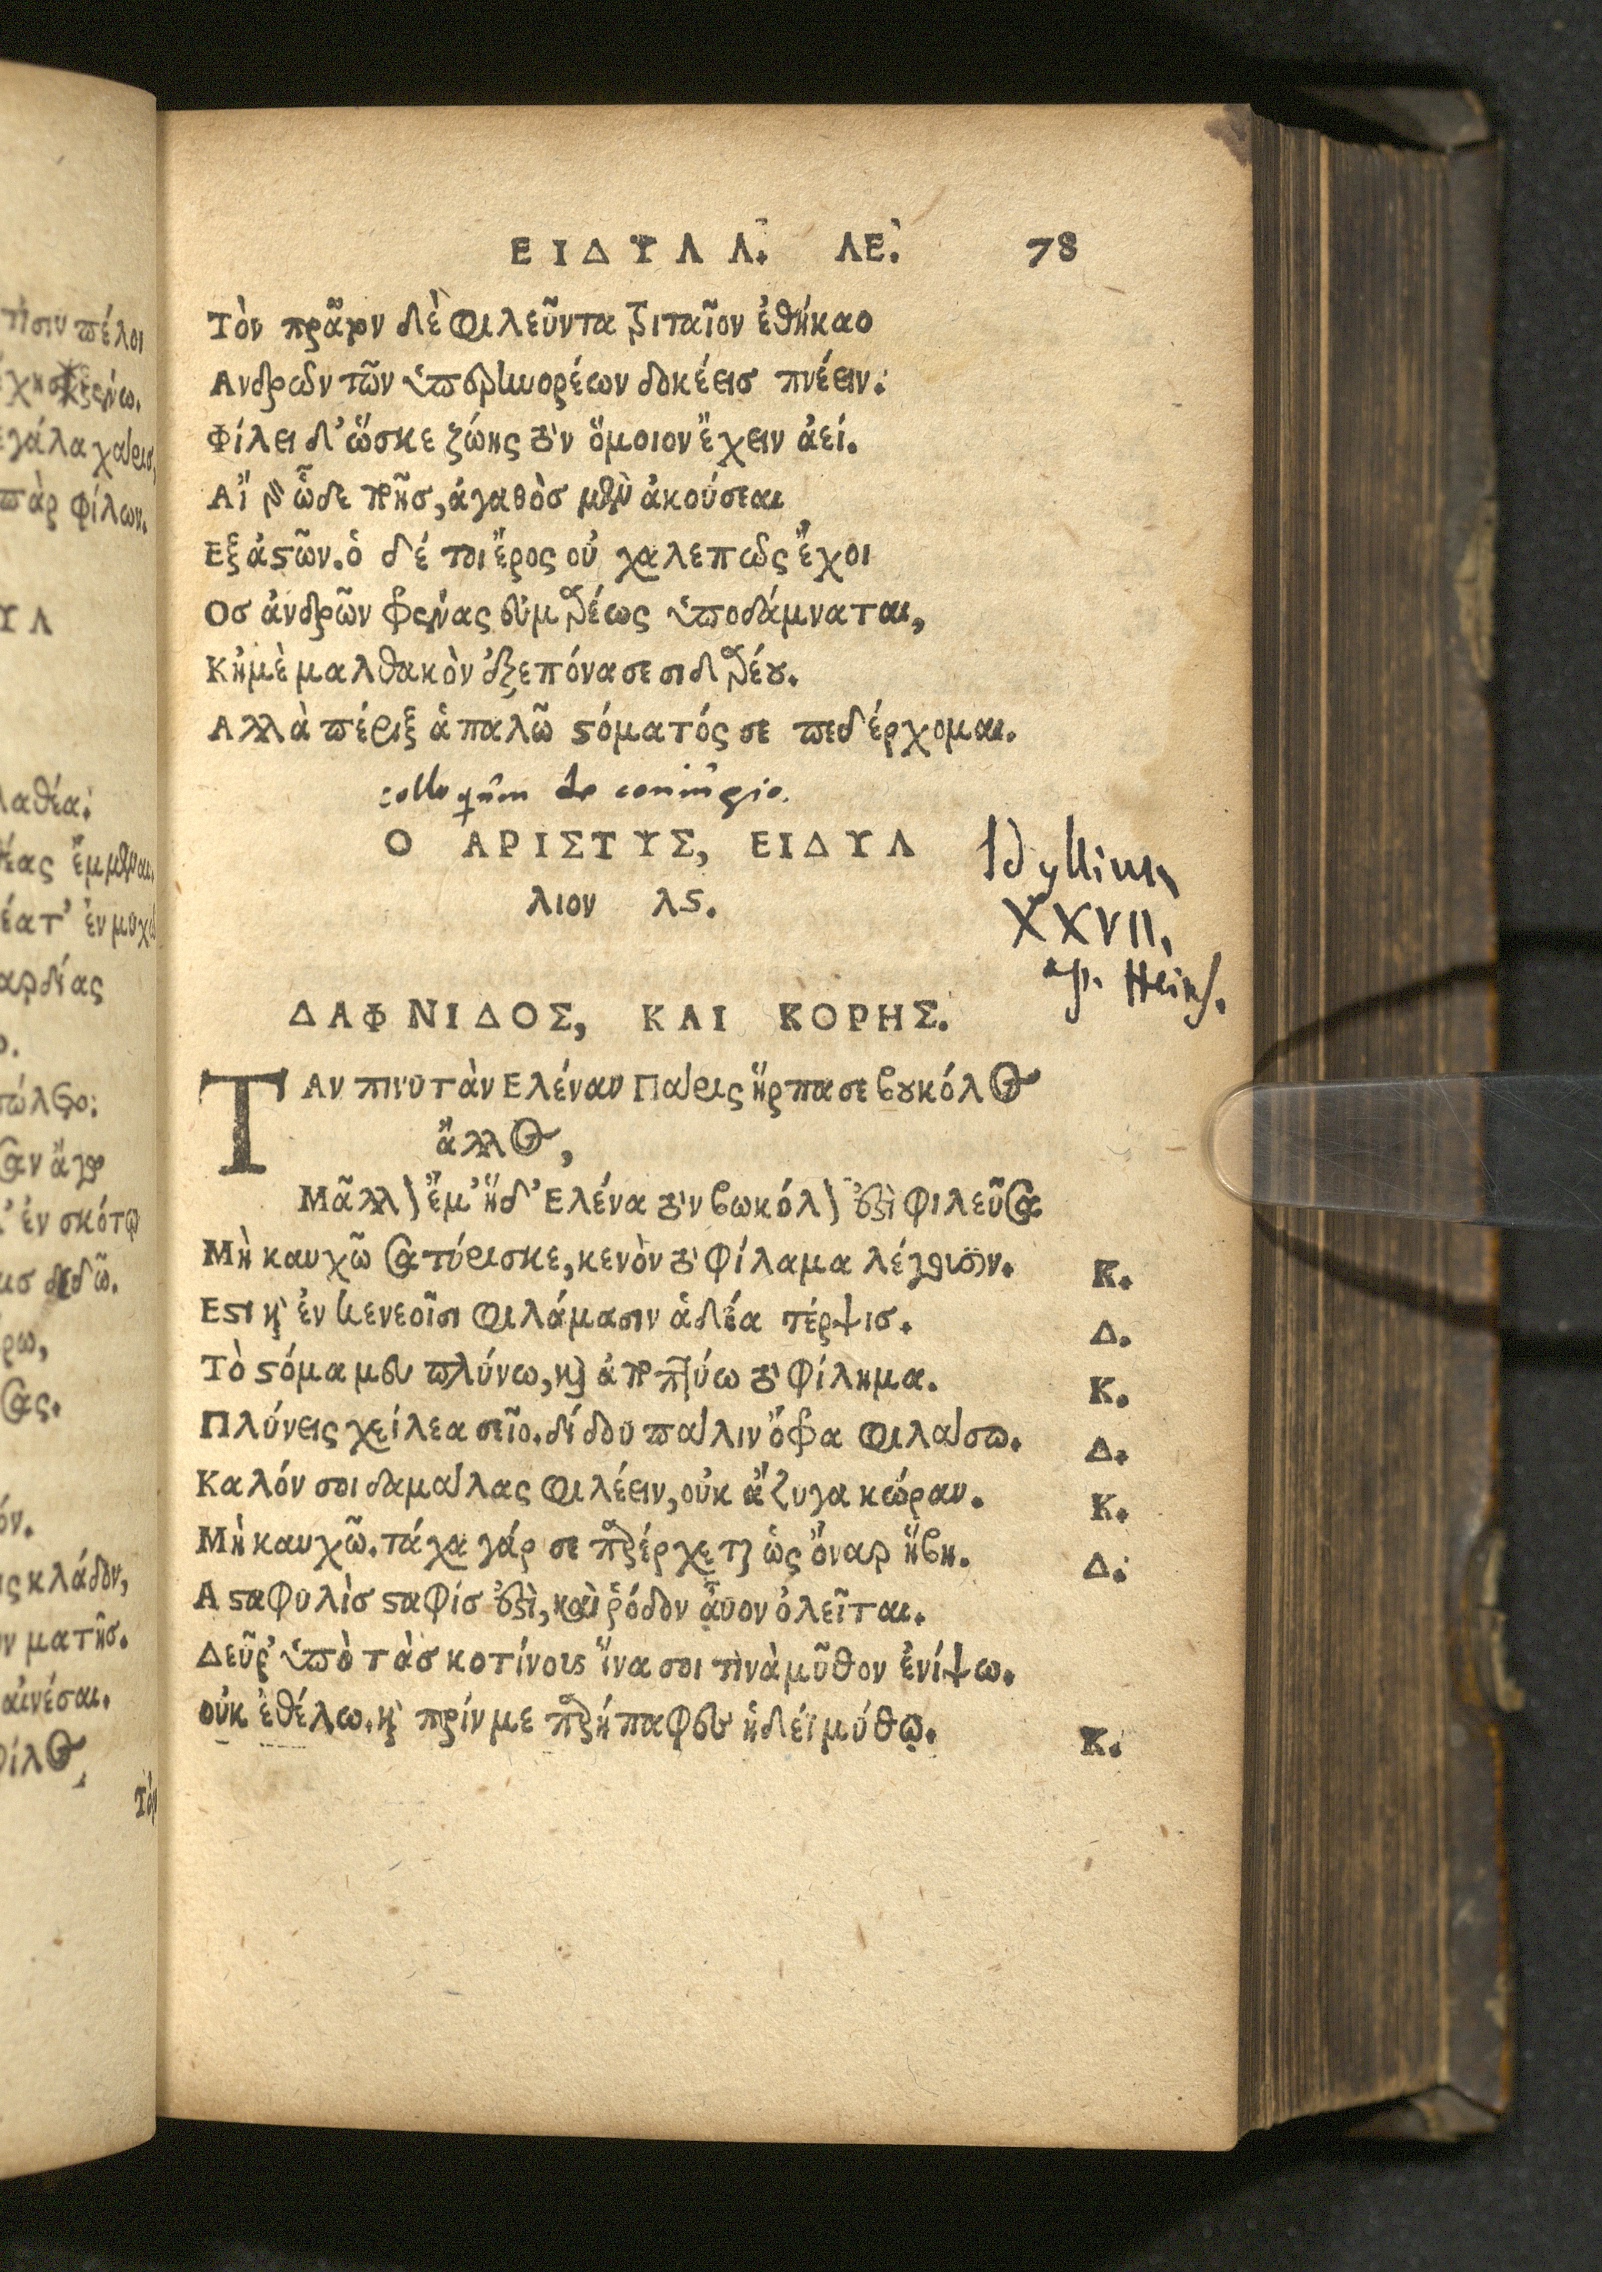 ΕΙΔΥΛΛ. ΛΕ. 78
Τὸν πρᾶτον δὲ φιλεῦντα τριταῖον ἐθήκαο
Ανδρῶν τῶν ὑπερηνορέων δοκέεισ πνέειν.
Φίλει δ' ὥσκε ζώης τὸν ὅμοιον ἔχειν ἀεί.
Αἴ γὸ ὧδε ποῆσ, ἀγαθὸσ μὲν ἀκούσεαι
Εξ ἀστῶν. ὁ δέ τοι ἔρος οὐ χαλεπῶς ἔχοι
Οσ ἀνδρῶν φρένας εὐμαρέως ὑποδάμναται,
Κἠμὲ μαλθακὸν ἐξεπόνασε σιδαρέου.
Αλλὰ πέριξ ἁπαλῶ στόματός σε πεδέρχομαι.
colloquiũm de coniũgio.
Ο ΑΡΙΣΤΥΣ, ΕΙΔΥΛ
λιον λϛ.
Idyllium
XXVII.
ap. Heins.
ΔΑΦΝΙΔΟΣ, ΚΑΙ ΚΟΡΗΣ.
ΤΑν πινυτὰν Ελέναν Πάρις ἥρπασε βουκόλος
ἄλλος,
Μᾶλλον ἔμ' ἥδ' Ελένα τὸν βωκόλον ἐστὶ φιλεῦσα
Μὴ καυχῶ σατύρισκε, κενὸν τὸ φίλαμα λέγουσιν. Κ.
Εστι καὶ ἐν κενεοῖσι φιλάμασιν ἁδέα τέρψισ. Δ.
Τὸ στόμα μευ πλύνω, καὶ ἀποπτύω τὸ φίλημα. Κ.
Πλύνεις χείλεα σεῖο. δίδου πάλιν ὄφρα φιλάσω. Δ.
Καλόν σοι δαμάλας φιλέειν, οὐκ ἄζυγα κώραν. Κ.
Μὴ καυχῶ. τάχα γάρ σε παρέρχεται ὡς ὄναρ ἥβη. Δ.
Α σταφυλὶσ σταφίσ ἐστὶ, καὶ ῥόδον ἆυον ὀλεῖται.
Δεῦρ' ὑπὸ τὰσ κοτίνους ἵνα σοι τινὰ μῦθον ἐνίψω.
οὐκ ἐθέλω. καὶ πρίν με παρήπαφες ἡδέϊ μύθῳ. Κ.